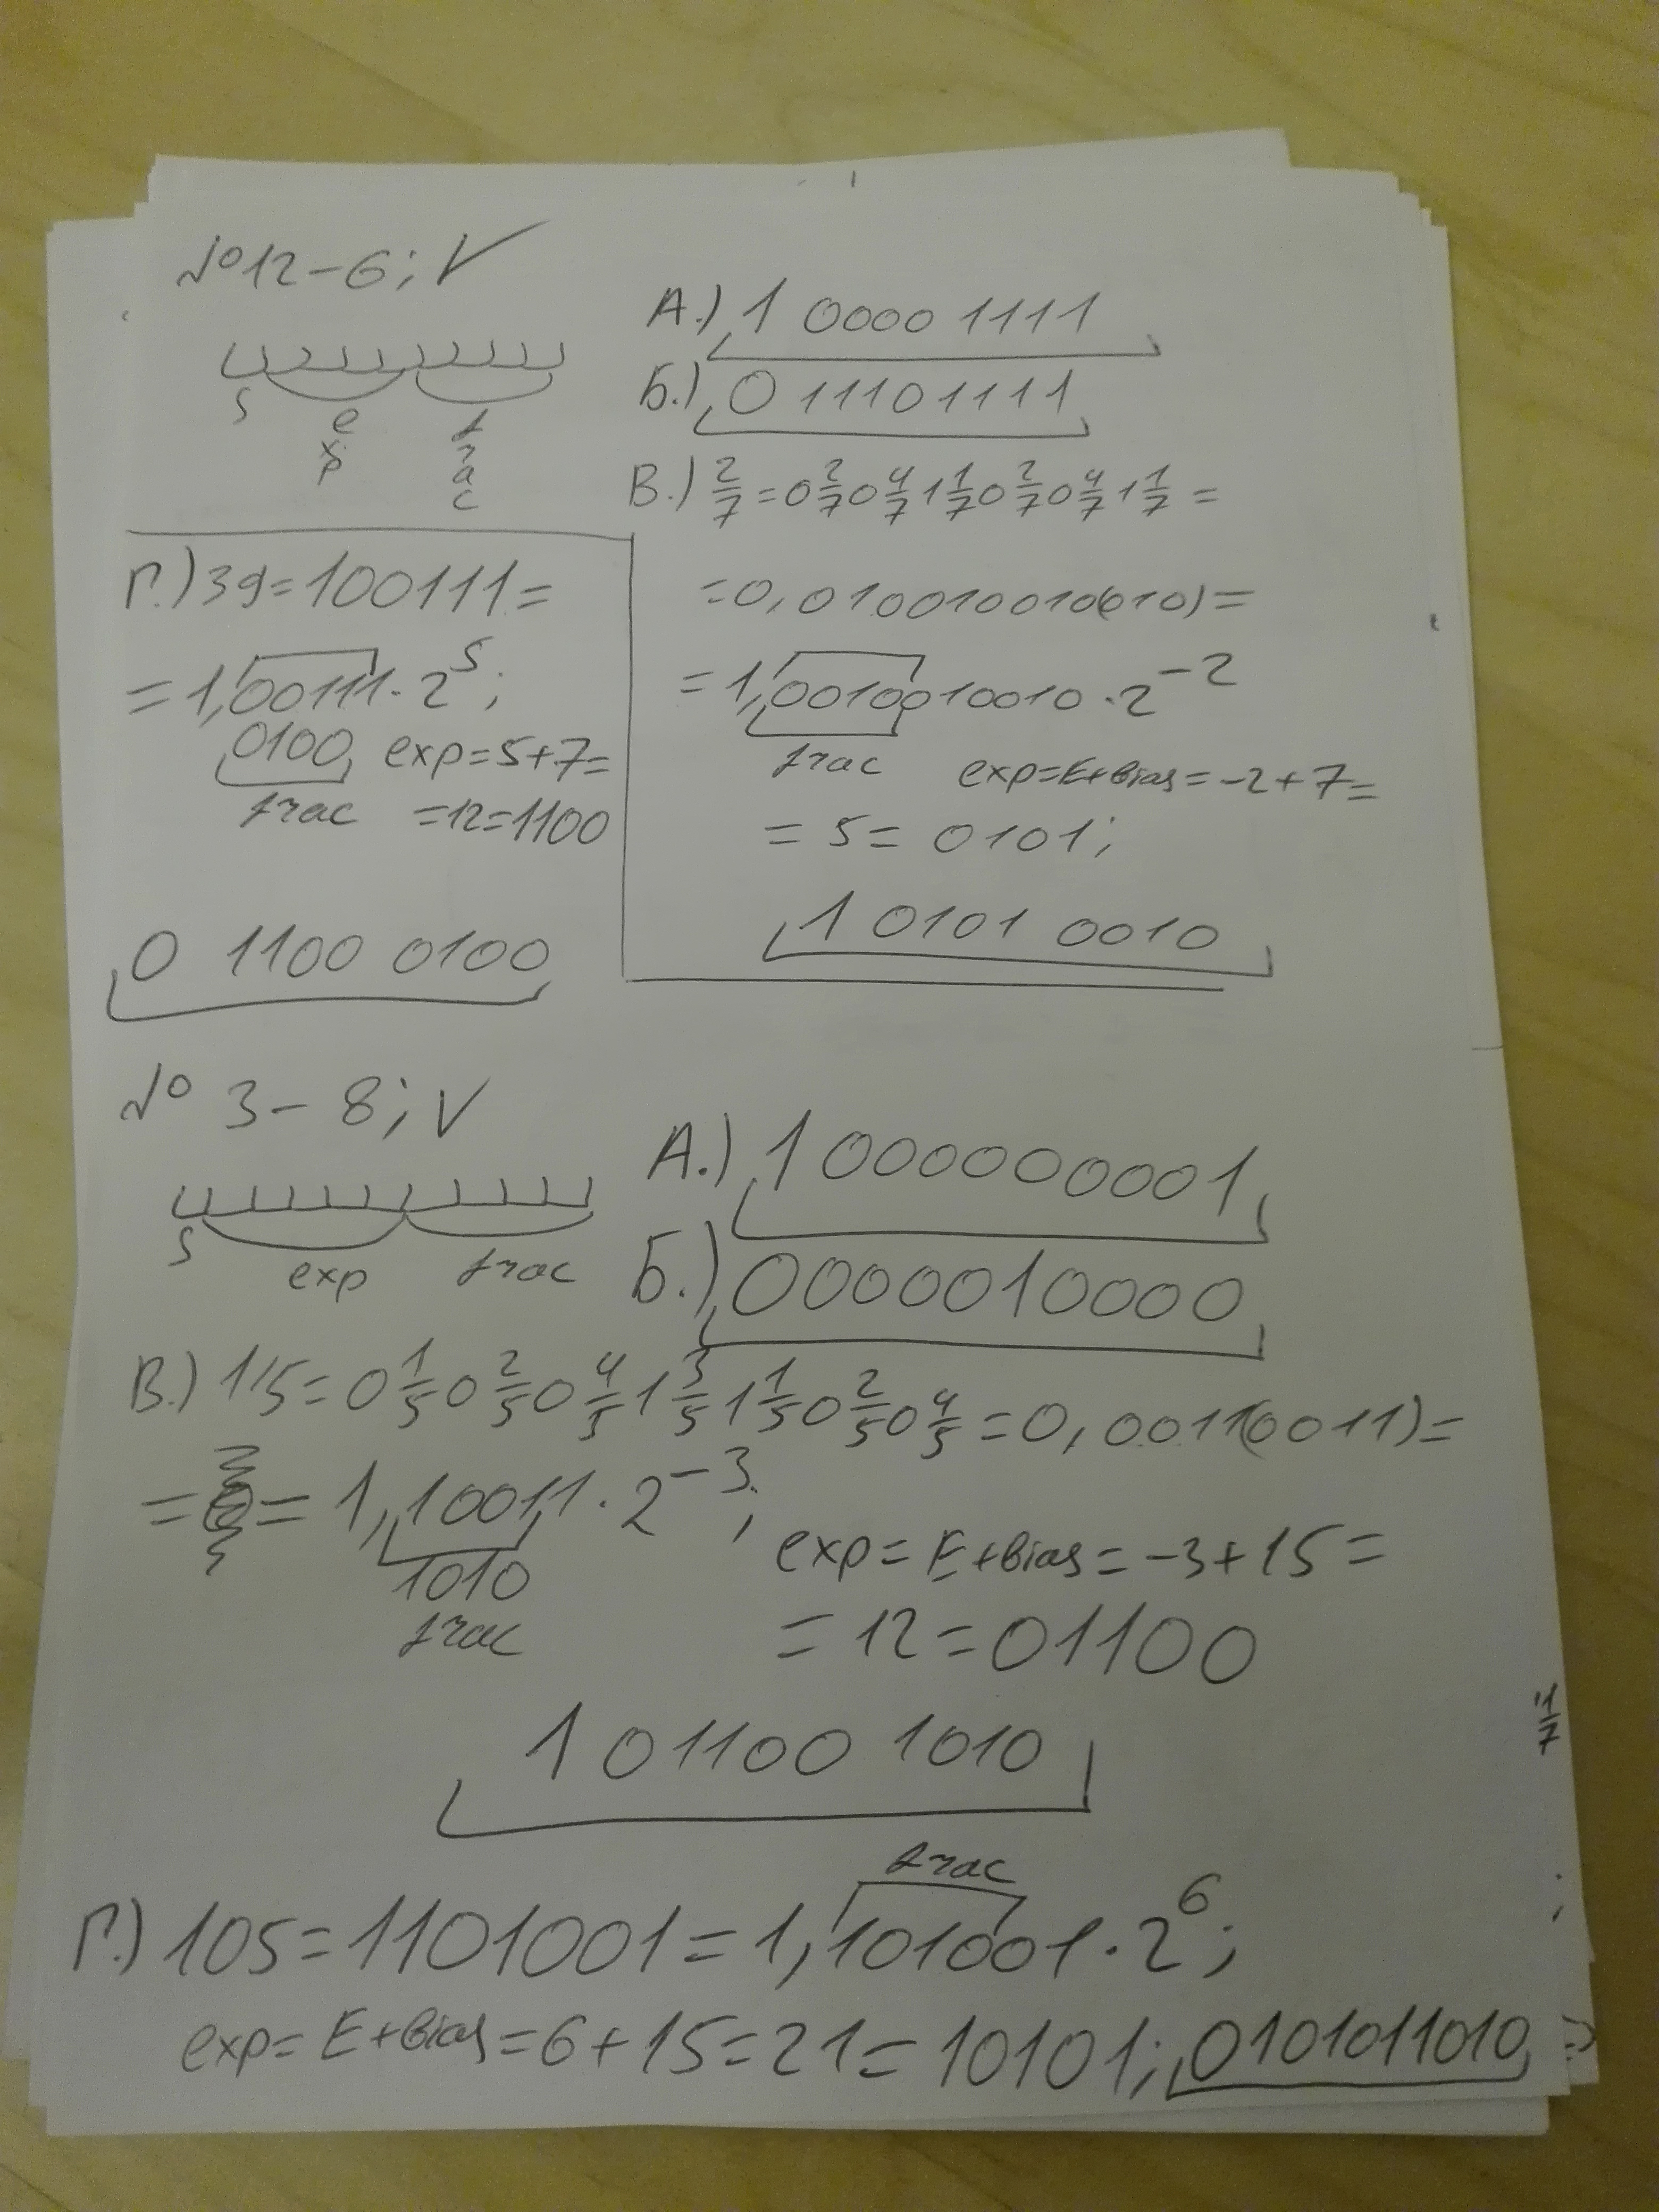 №12-6; V
А.) 1 0000 1111
Б.) 0 11101111
s
exp
frac
В.) 2/7 = 0 2/7 0 4/7 1 1/7 0 2/7 0 4/7 1 1/7 =
= 0,010010010(010) =
= 1,0010010010 · 2^-2
frac exp = E + Bias = -2 + 7 =
= 5 = 0101;
1 0101 0010
Г.) 39 = 100111 =
= 1,00111 · 2^5;
0100 exp = 5 + 7 =
frac = 12 = 1100
0 1100 0100
№ 3-8; V
А.) 1 000000001
s exp frac
Б.) 0000010000
В.) 1/5 = 0 1/5 0 2/5 0 4/5 1 3/5 1 1/5 0 2/5 0 4/5 = 0,0011(0011) =
= = 1,10011 · 2^-3;
1010
frac
exp = E + Bias = -3 + 15 =
= 12 = 01100
1 01100 1010
frac
Г.) 105 = 1101001 = 1,101001 · 2^6;
exp = E + Bias = 6 + 15 = 21 = 10101; 0101011010 =>